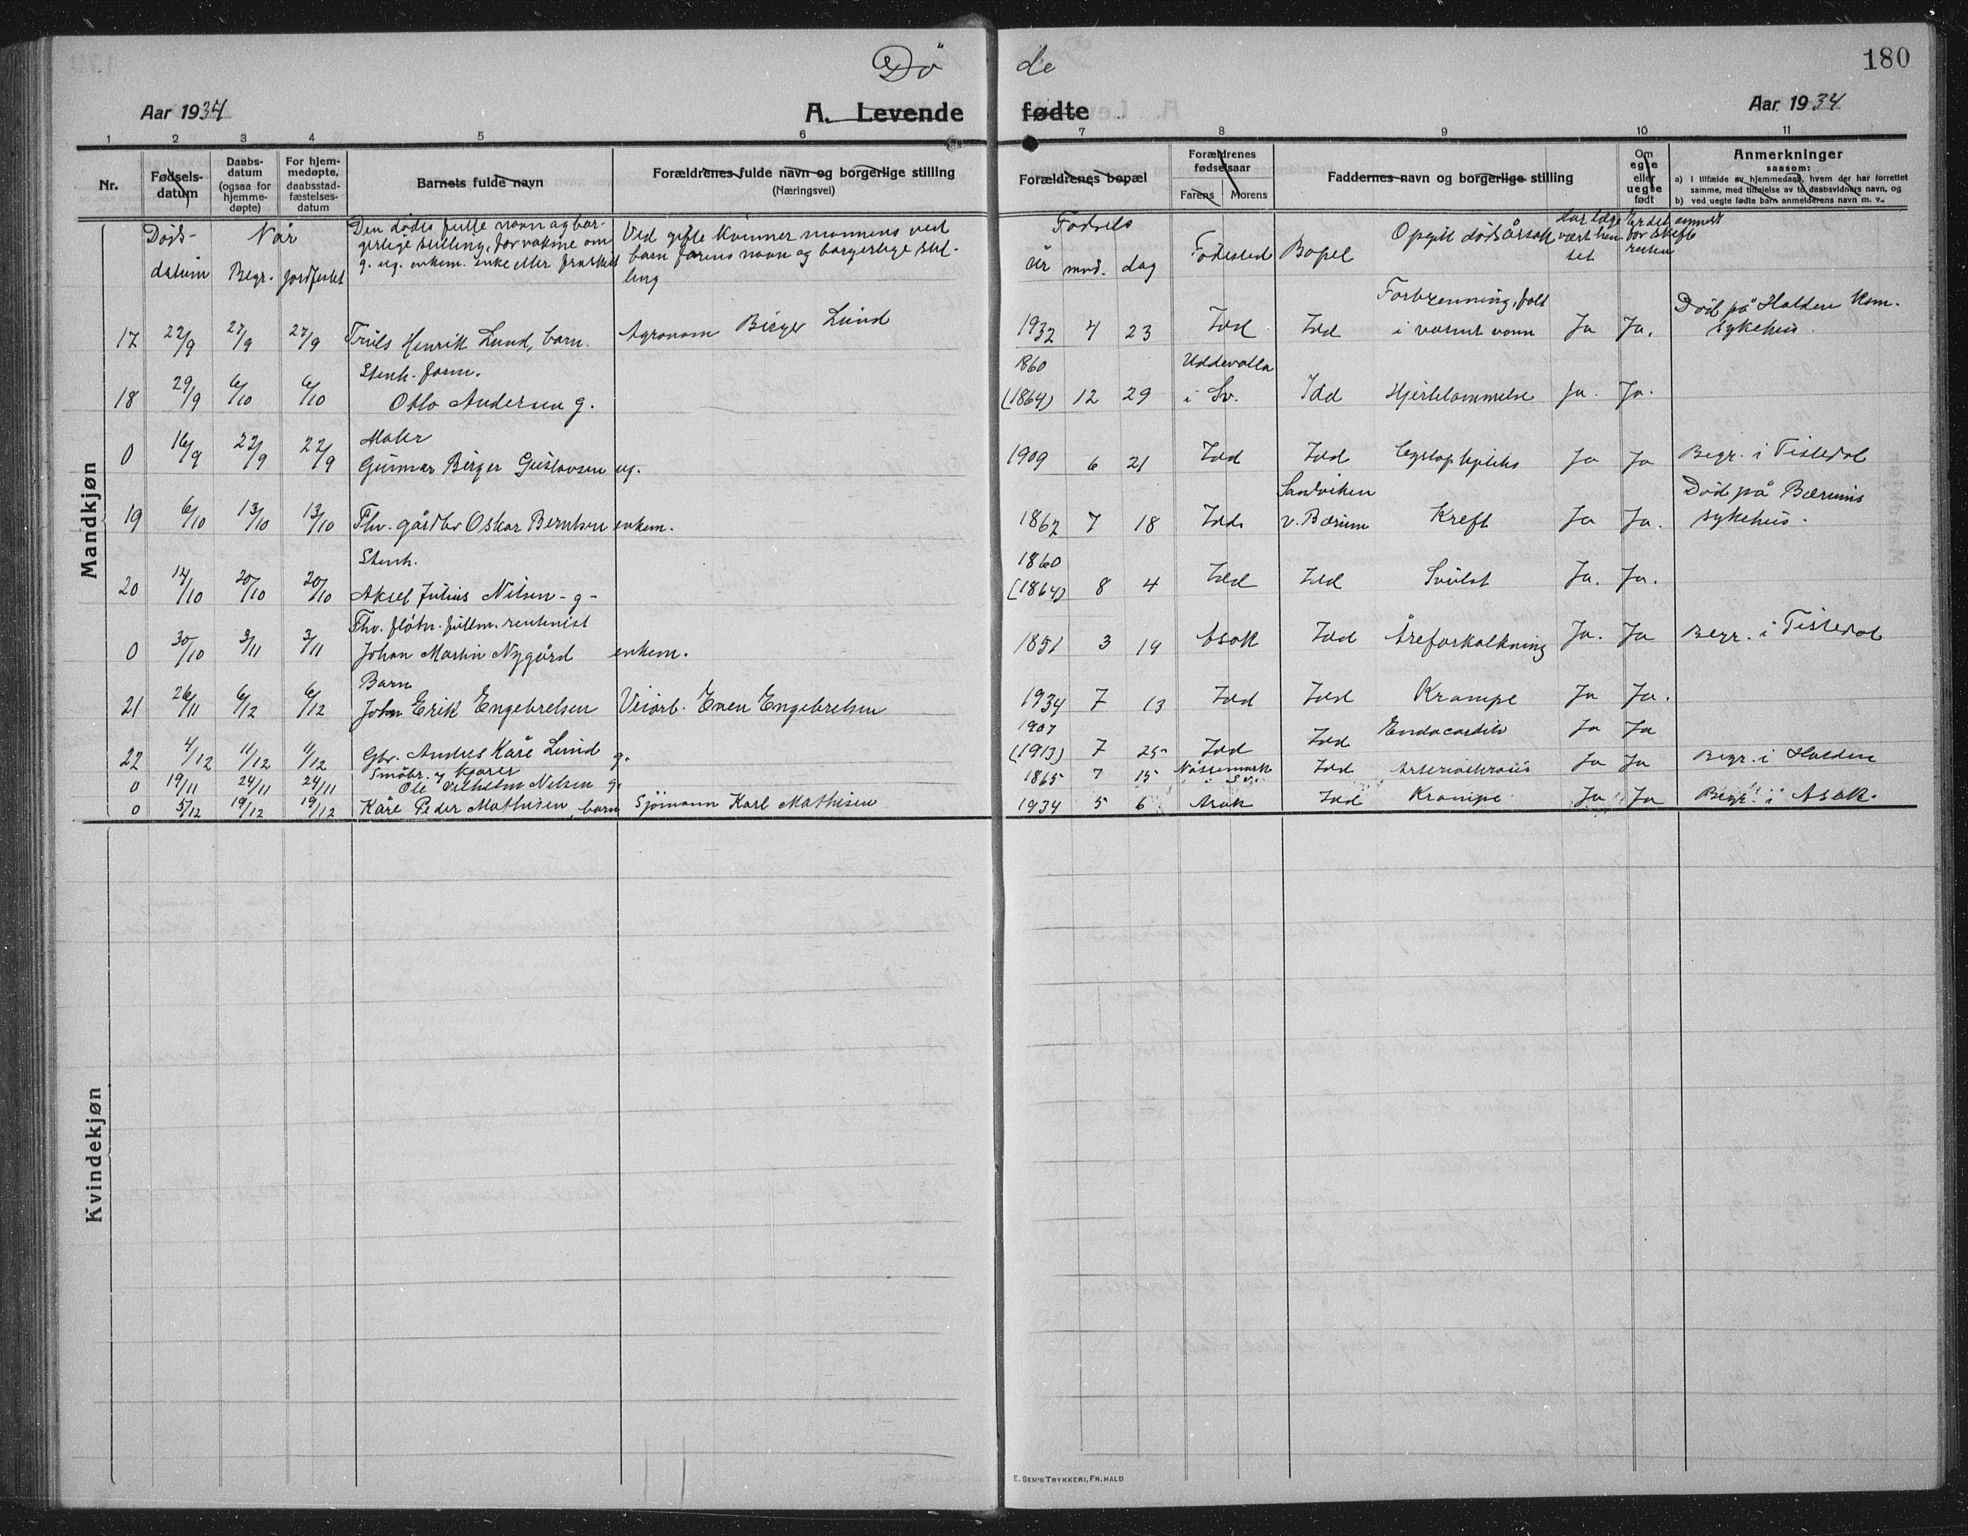 Dø de
180
Aar 1934 A. Levende fødte Aar 1934
1 2 3 4 5 6 7 8 9 10 11
Nr. Fødsels-datum Daabs-datum (ogsaa for hjemme-døpte) For hjem-medøpte, daabsstad-fæstelses-datum Barnets fulde navn Forældrenes fulde navn og borgerlige stilling (Næringsvei) Forældrenes bopæl Forældrenes fødselsaar Farens Morens Faddernes navn og borgerlige stilling Om egte eller uegte født Anmerkninger saasom: a) i tilfælde av hjemmedaab, hvem der har forrettet samme, med tilføielse av to daabsvidners navn, og b) ved uegte fødte barn anmelderens navn m. v.
Døds-datum Når Begr. jordfestet Den dødes fulle navn og bor-gerlige stilling, for voksne om g. ug. enkem. enke eller fraskilt Ved gifte kvinner mannens ved barn farens navn og borgerlige stil-ling Fødsels år mnd. dag Fødested Bopel Opgitt dødsårsak Har læge vært hen-tet Er det anmeldt for skifte-retten
Mandkjøn
17 22/9 27/9 27/9 Truls Henrik Lund, barn. Agronom Birger Lund 1932 4 23 Idd Idd Forbrenning, falt i varmt vann Ja Ja. Død på Halden kom. sykehus.
18 29/9 6/10 6/10 Stenh. form. Otto Andersen g. 1860 (1864) 12 29 Uddevalla i Sv. Idd Hjertelammelse Ja. Ja.
0 16/9 22/9 22/9 Maler Gunnar Birger Gustavsen ug. 1909 6 21 Idd Idd Ja Ja Begr. i Tistedal
19 6/10 13/10 13/10 Fhv. gårdbr Oskar Berntsen enkem. 1862 7 18 Idd Sandviken v. Bærum Kreft Ja Ja. Død på Bærums sykehus.
20 14/10 20/10 20/10 Stenh. Aksel Julius Nilsen - g - 1860 (1864) 8 4 Idd Idd Svulst Ja. Ja.
0 30/10 3/11 3/11 Fhv. fløtn. fullm. rentenist Johan Martin Nygård enkem. 1851 3 19 Asak Idd Åreforkalkning Ja. Ja Begr. i Tistedal
21 26/11 6/12 6/12 Barn John Erik Engebretsen Veiarb. Even Engebretsen 1934 7 13 Idd Idd Krampe Ja Ja.
22 4/12 11/12 11/12 Gbr. Andres Kåre Lund g. 1907 (1913) 7 25 Idd Idd Endocardit Ja Ja
0 19/11 24/11 24/11 Småbr. og kjører Ole Vilhelm Nilsen g. 1865 7 15 Nössemark i Sv. Idd Ja Ja Begr. i Halden
0 5/12 19/12 19/12 Kåre Peder Mathisen, barn Sjömann Karl Mathisen 1934 5 6 Asak Idd Krampe Ja Ja Begr. i Asak.
Kvindekjøn
E. SEM'S TRYKKERI, FR. HALD